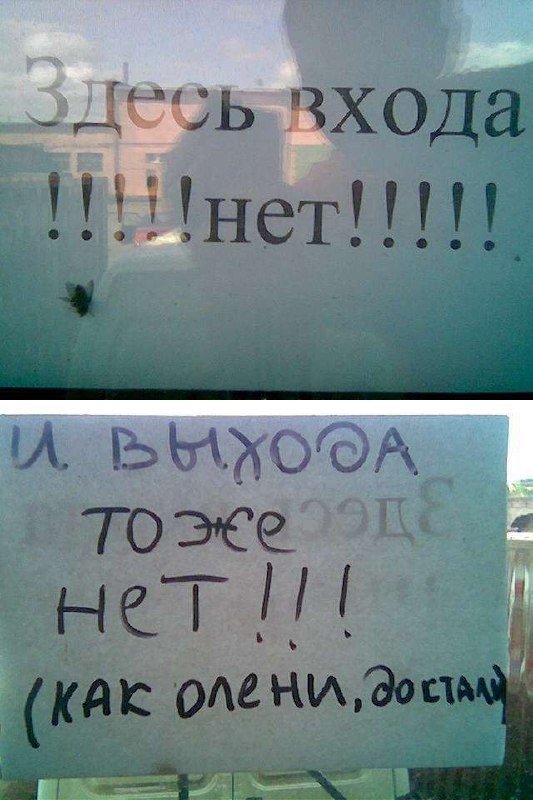 Здесь входа
!!!!!нет!!!!!
И ВЫХОДА
ТОЖЕ
НеТ!!!
(КАК ОЛЕНИ, ДОСТАЛИ
Здесь